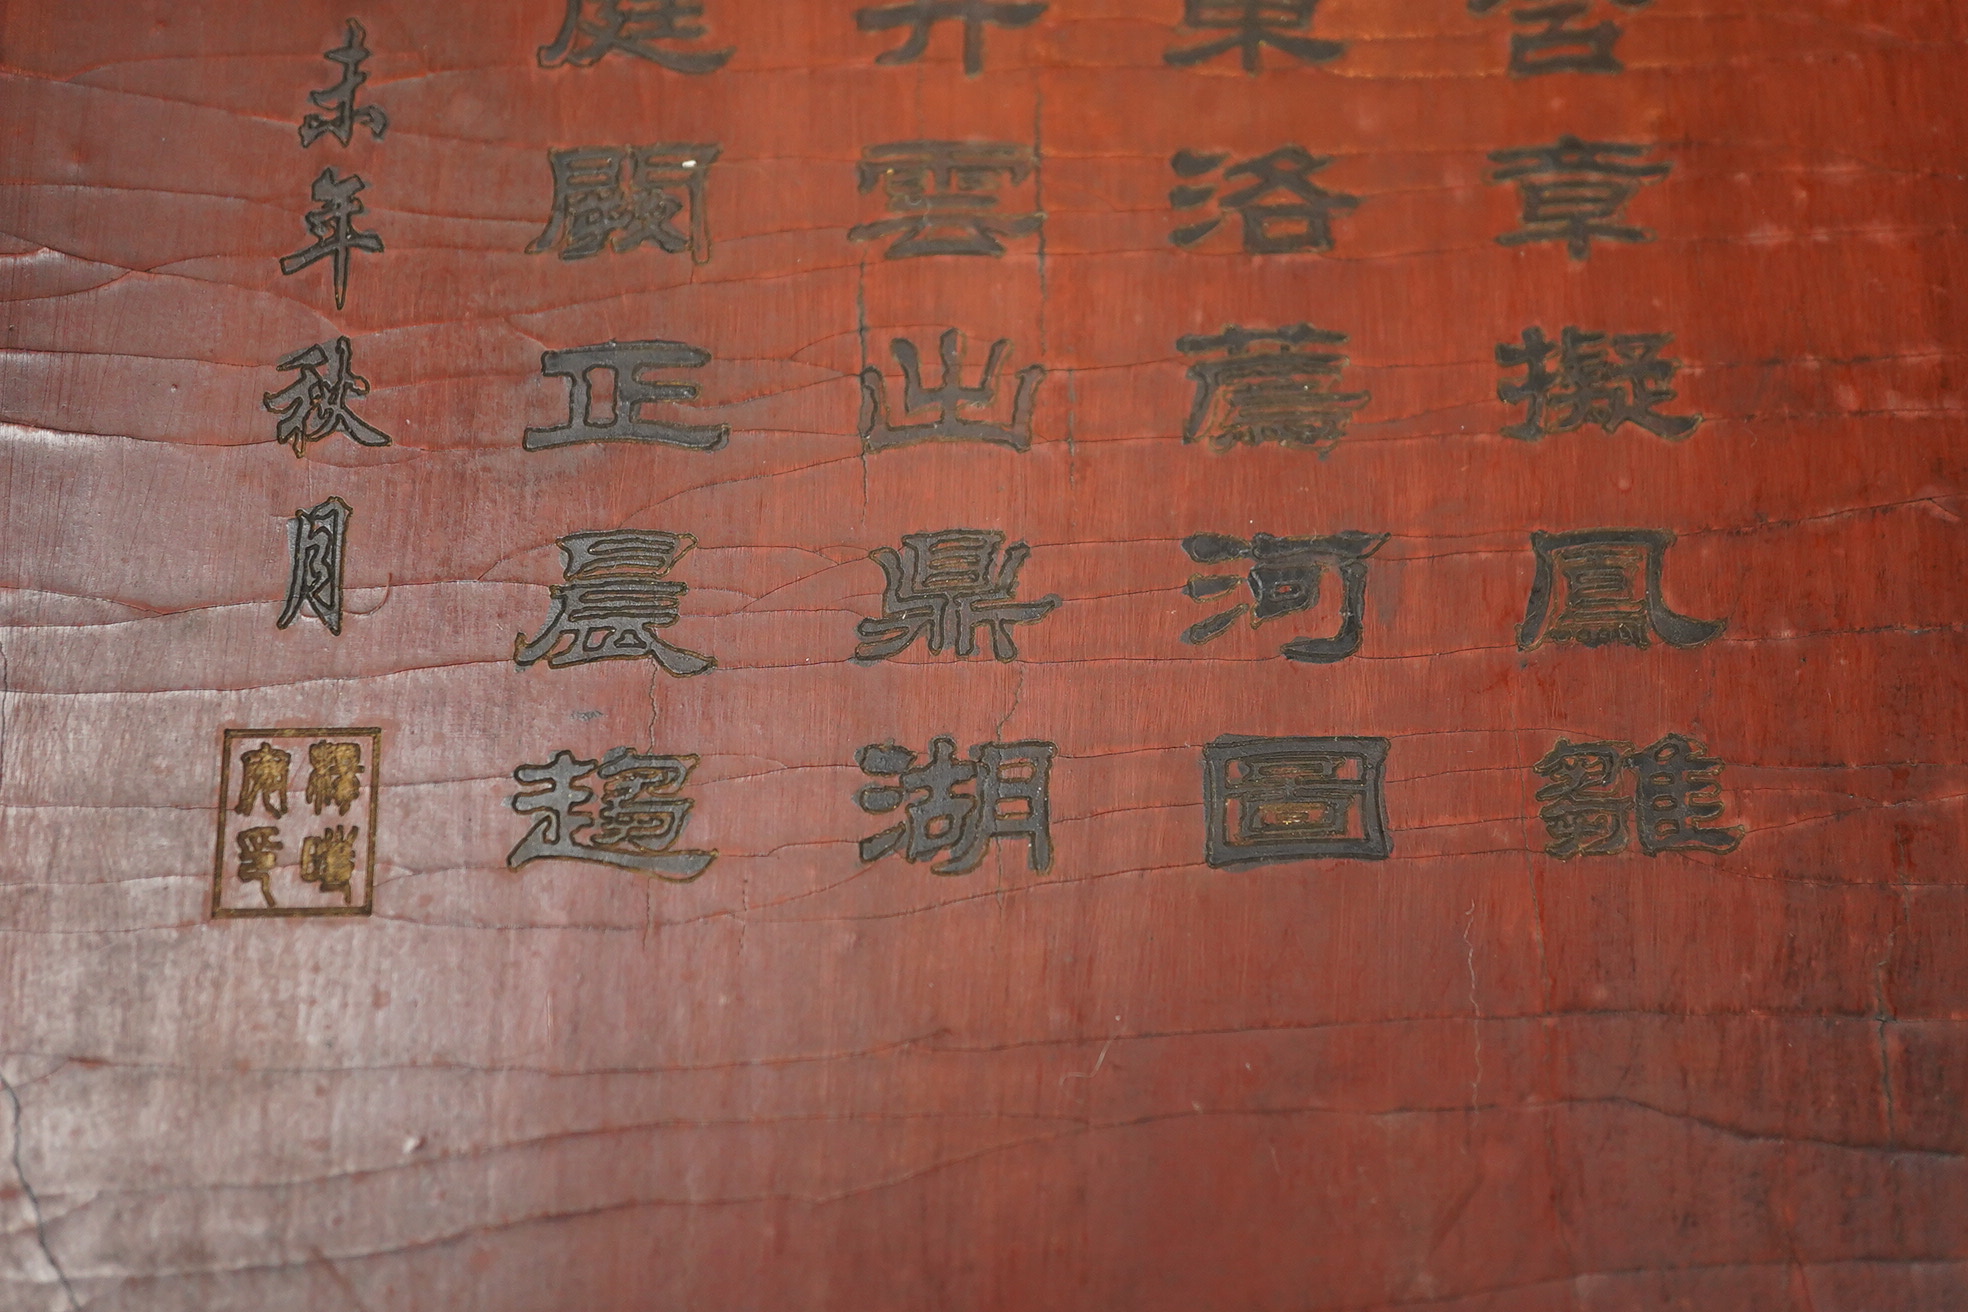 宮章擬鳳雛
東洛薦河圖
井雲出鼎湖
庭闕正晨趨
未年秋月